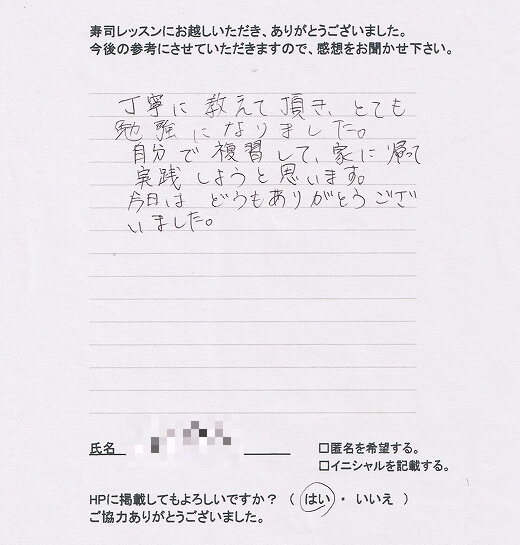 寿司レッスンにお越しいただき、ありがとうございました。
今後の参考にさせていただきますので、感想をお聞かせ下さい。
丁寧に教えて頂き、とても
勉強になりました。
自分で復習して、家に帰って
実践しようと思います。
今日はどうもありがとうござ
いました。
氏名
□匿名を希望する。
□イニシャルを記載する。
HPに掲載してもよろしいですか？（ はい ・ いいえ ）
ご協力ありがとうございました。